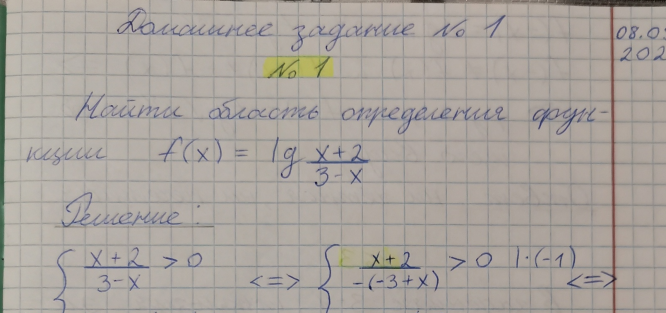 Домашнее задание № 1
08.0
202
№ 1
Найти область определения фун-
кции f(x) = lg (x+2)/(3-x)
Решение:
{ (x+2)/(3-x) > 0 <=> { (x+2)/(-(-3+x)) > 0 |·(-1) <=>